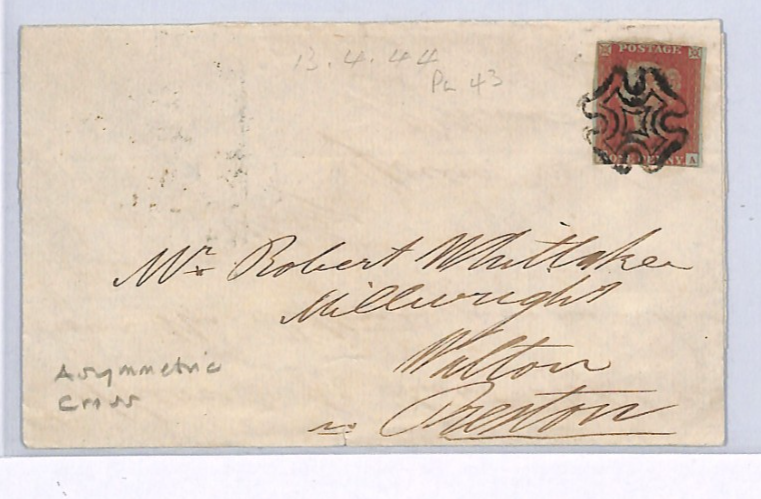 13.4.44
Pl 43
POSTAGE
A
Mr. Robert Whittaker
Millwright
Walton
nr Preston
Asymmetric
Cross